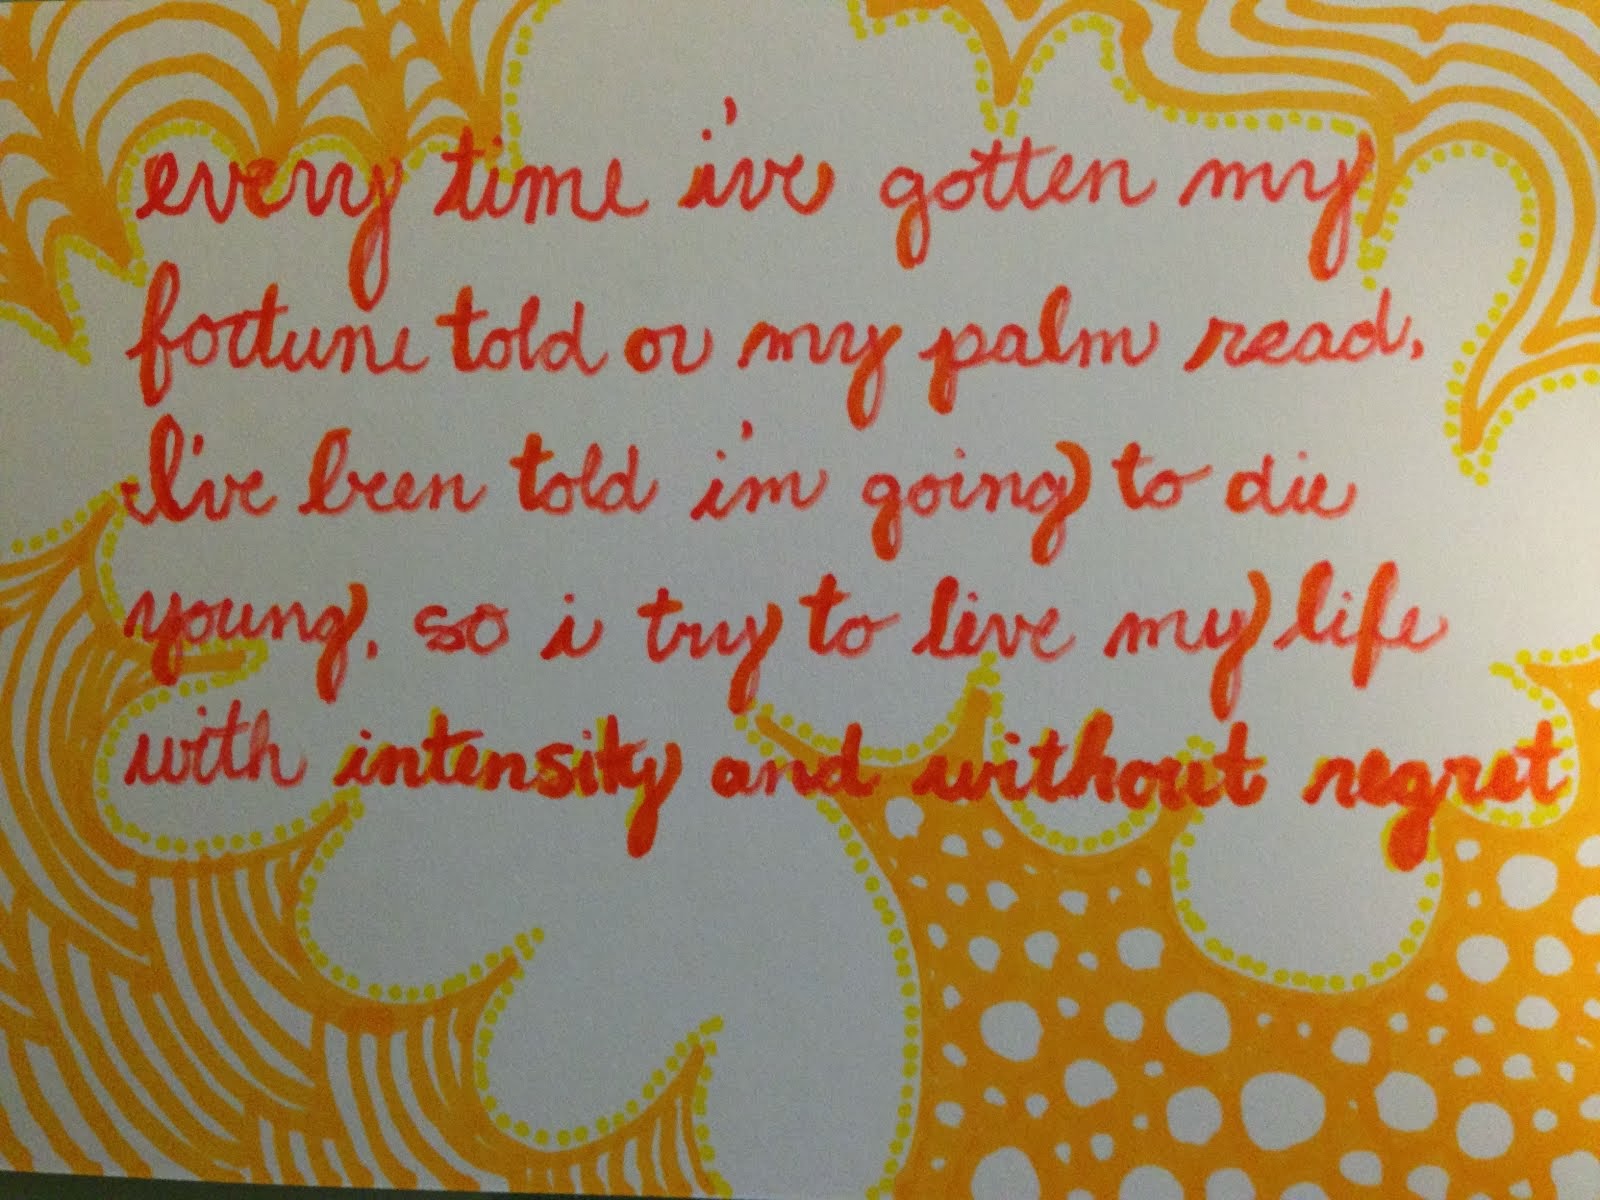 every time i've gotten my
fortune told or my palm read,
I've been told i'm going to die
young, so i try to live my life
with intensity and without regret